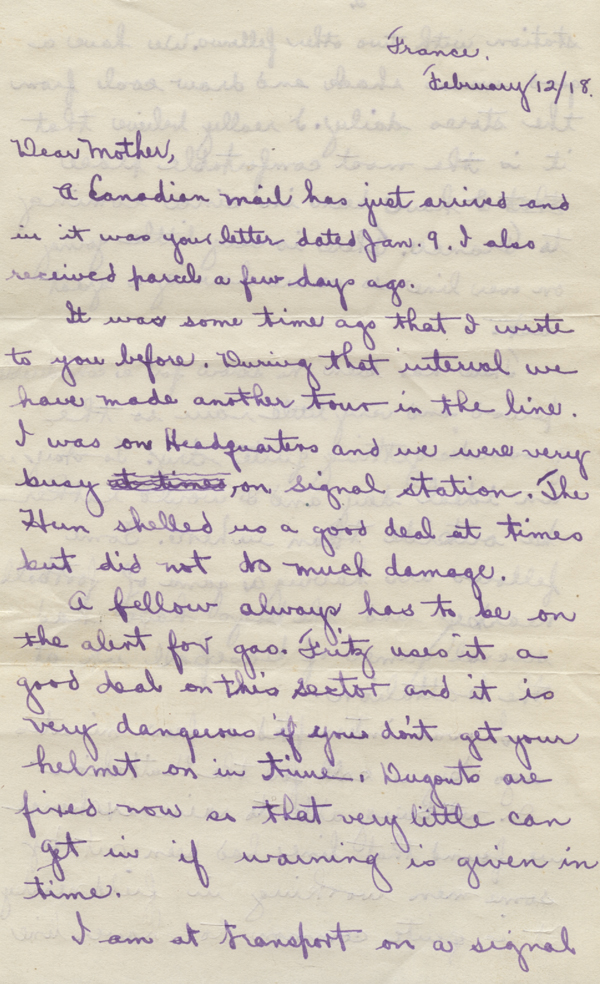 France.
February 12/18.
Dear Mother,
A Canadian mail has just arrived and
in it was your letter dated Jan. 9. I also
received parcel a few days ago.
It was some time ago that I wrote
to you before. During that interval we
have made another tour in the line.
I was on Headquarters and we were very
busy at times, on signal station. The
Hun shelled us a good deal at times
but did not do much damage.
A fellow always has to be on
the alert for gas. Fritz uses it a
good deal on this sector and it is
very dangerous if you don't get your
helmet on in time. Dugouts are
fixed now so that very little can
get in if warning is given in
time.
I am at transport on a signal